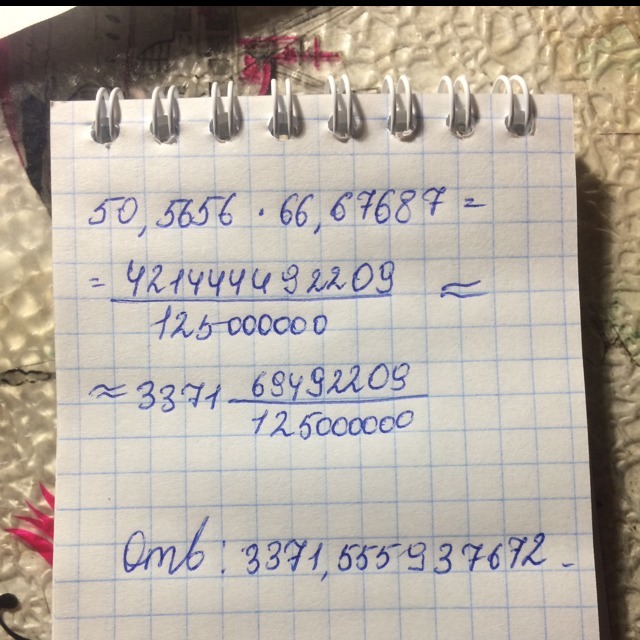 50,5656 · 66,67687 =
= 421444492209 / 125000000 ≈
≈ 3371 69492209 / 125000000
Отв: 3371,555937672.